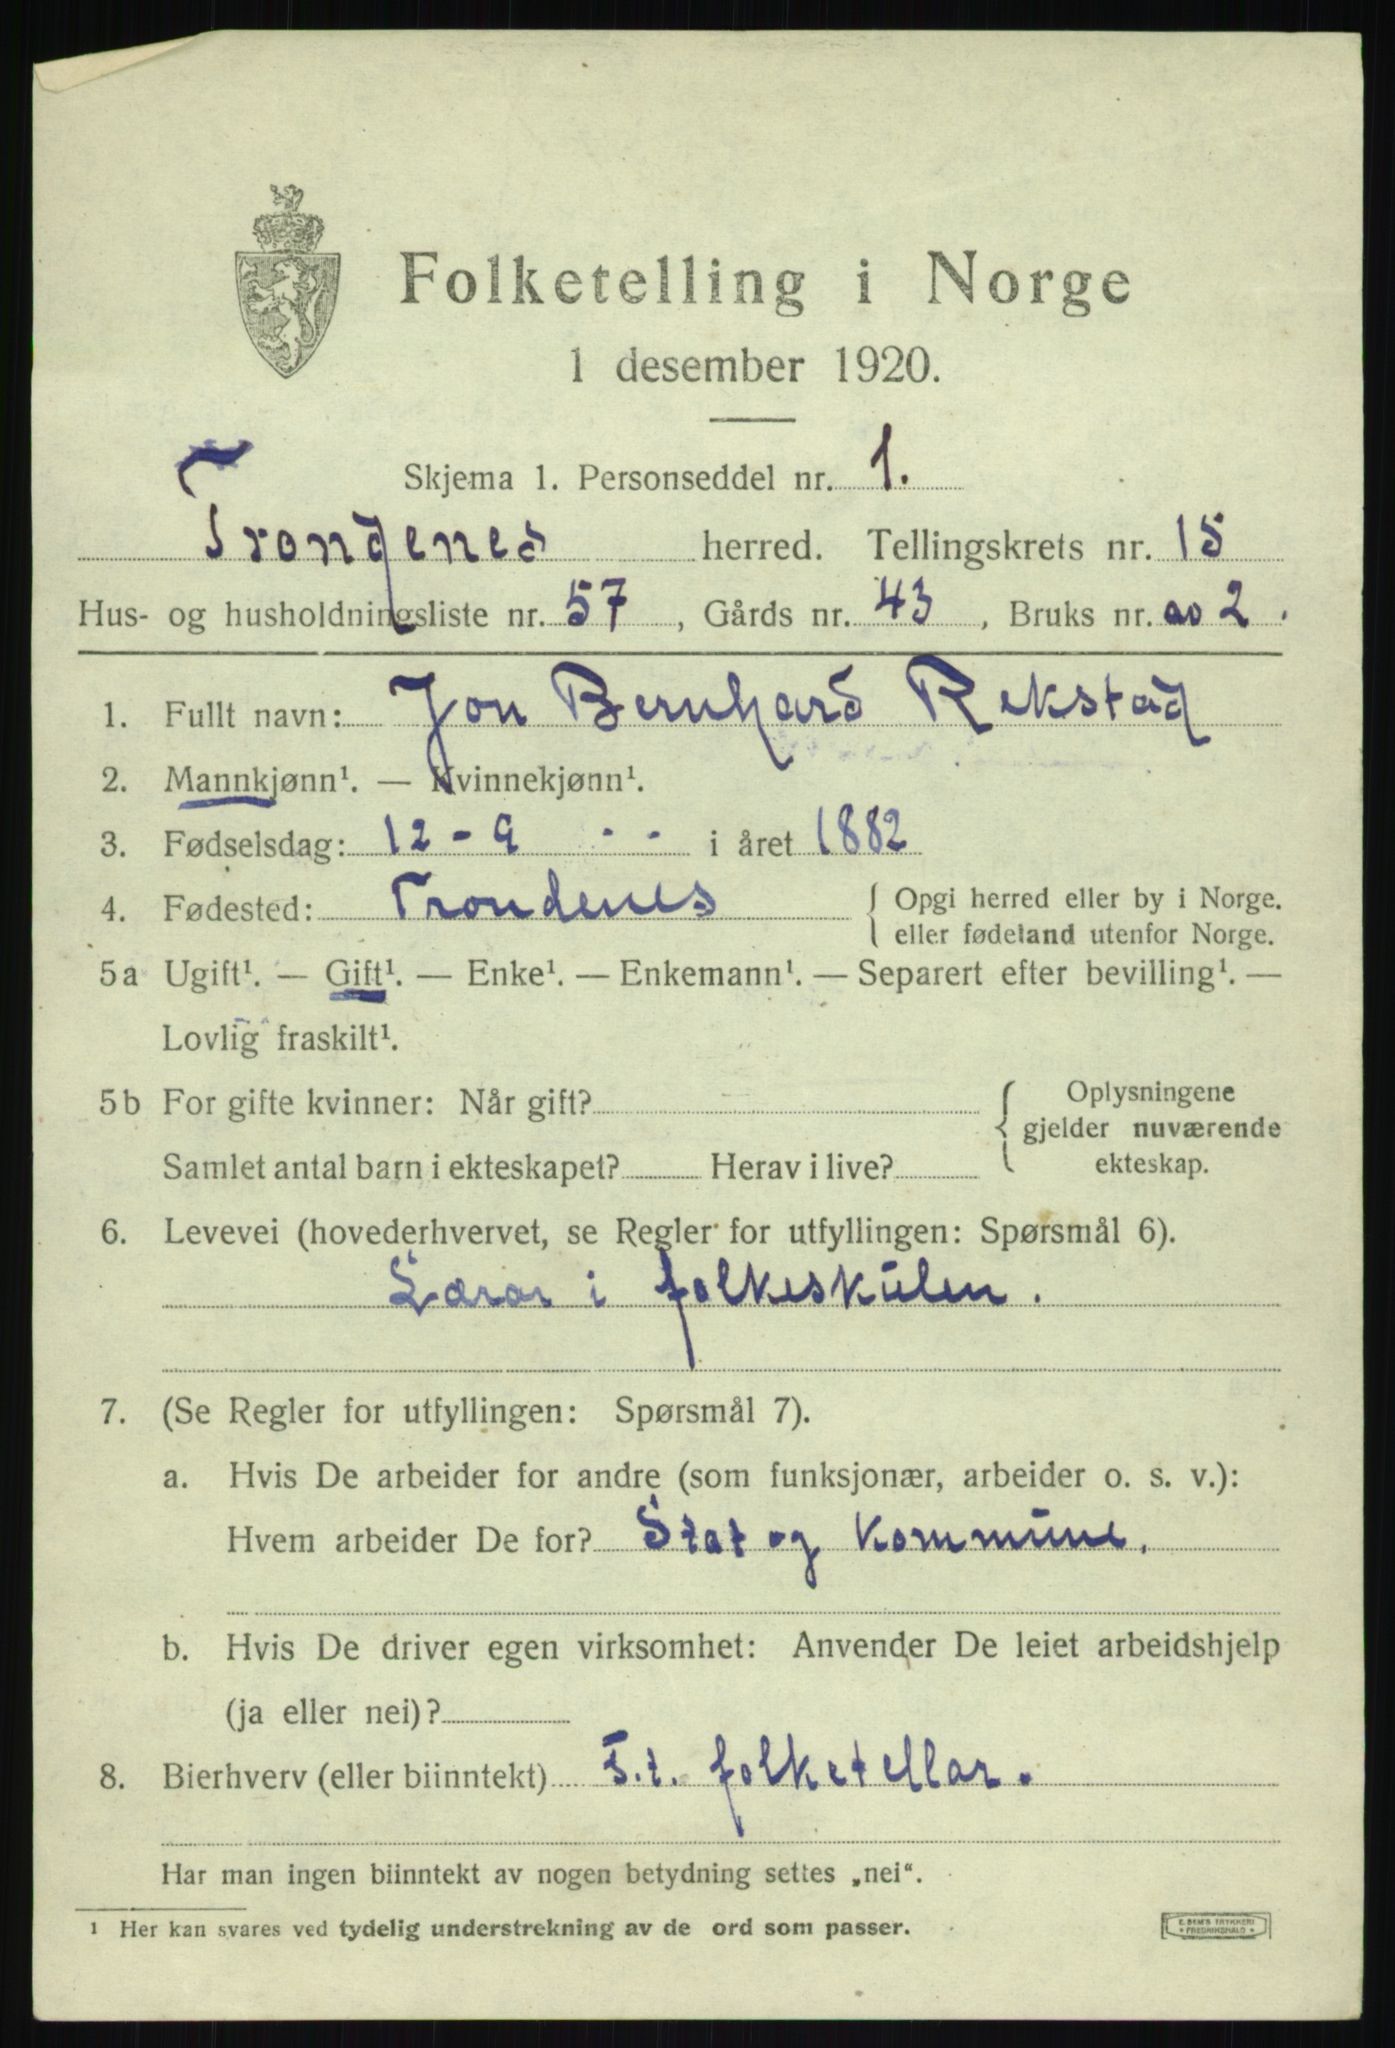 Folketelling i Norge
1 desember 1920.
Skjema 1. Personseddel nr. 1.
Trondenes herred. Tellingskrets nr. 15
Hus- og husholdningsliste nr. 57, Gårds nr. 43, Bruks nr. av 2.
1. Fullt navn: Jon Bernhard Rekstad
2. Mannkjønn¹. — Kvinnekjønn¹.
3. Fødselsdag: 12 - 9 - - i året 1882
4. Fødested: Trondenes { Opgi herred eller by i Norge.
eller fødeland utenfor Norge.
5a Ugift¹. — Gift¹. — Enke¹. — Enkemann¹. — Separert efter bevilling¹. —
Lovlig fraskilt¹.
5b For gifte kvinner: Når gift? { Oplysningene
gjelder nuværende
Samlet antal barn i ekteskapet? Herav i live? ekteskap.
6. Levevei (hovederhvervet, se Regler for utfyllingen: Spørsmål 6).
Lærar i folkeskulen.
7. (Se Regler for utfyllingen: Spørsmål 7).
a. Hvis De arbeider for andre (som funksjonær, arbeider o. s. v.):
Hvem arbeider De for? Stat og kommune.
b. Hvis De driver egen virksomhet: Anvender De leiet arbeidshjelp
(ja eller nei)?
8. Bierhverv (eller biinntekt) F.t. folketellar.
Har man ingen biinntekt av nogen betydning settes „nei“.
¹ Her kan svares ved tydelig understrekning av de ord som passer.
E. SEM'S TRYKKERI
FREDRIKSHALD